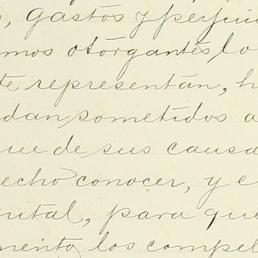 , gastos y perjui
mos otorgantes lo
te representan, h
dan sometidos a
ue de sus causa
echo conocer, y e
ental, para que
mento los compel